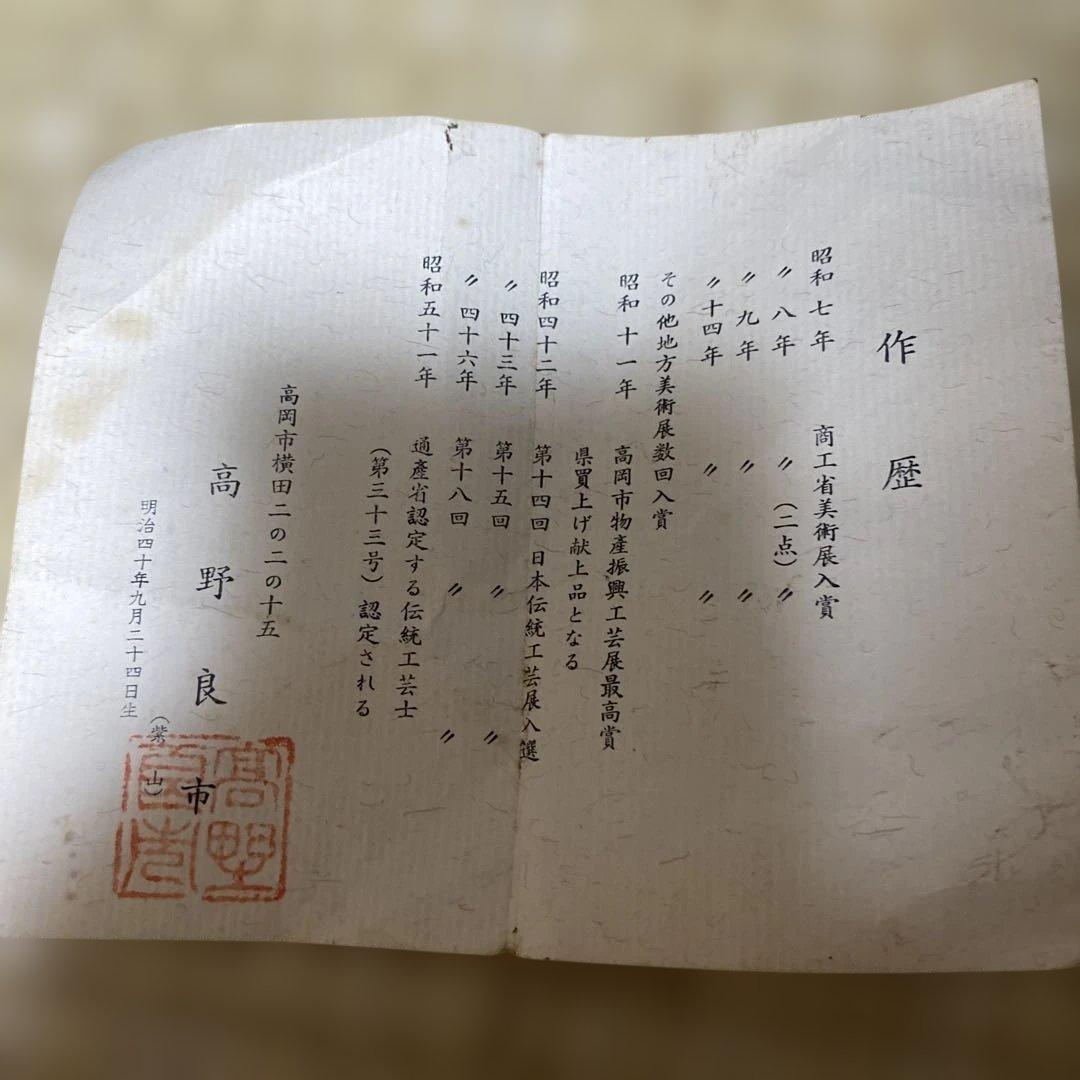 作歴
昭和七年 商工省美術展入賞
〃 八年 〃 (二点) 〃
〃 九年 〃 〃
〃 十四年 〃 〃
その他地方美術展数回入賞
昭和十一年 高岡市物産振興工芸展最高賞
県買上げ献上品となる
昭和四十二年 第十四回 日本伝統工芸展入選
〃 四十三年 第十五回 〃 〃
〃 四十六年 第十八回 〃 〃
昭和五十一年 通産省認定する伝統工芸士
(第三十三号) 認定される
高岡市横田二の二の十五
高野良市
(紫山)
明治四十年九月二十四日生